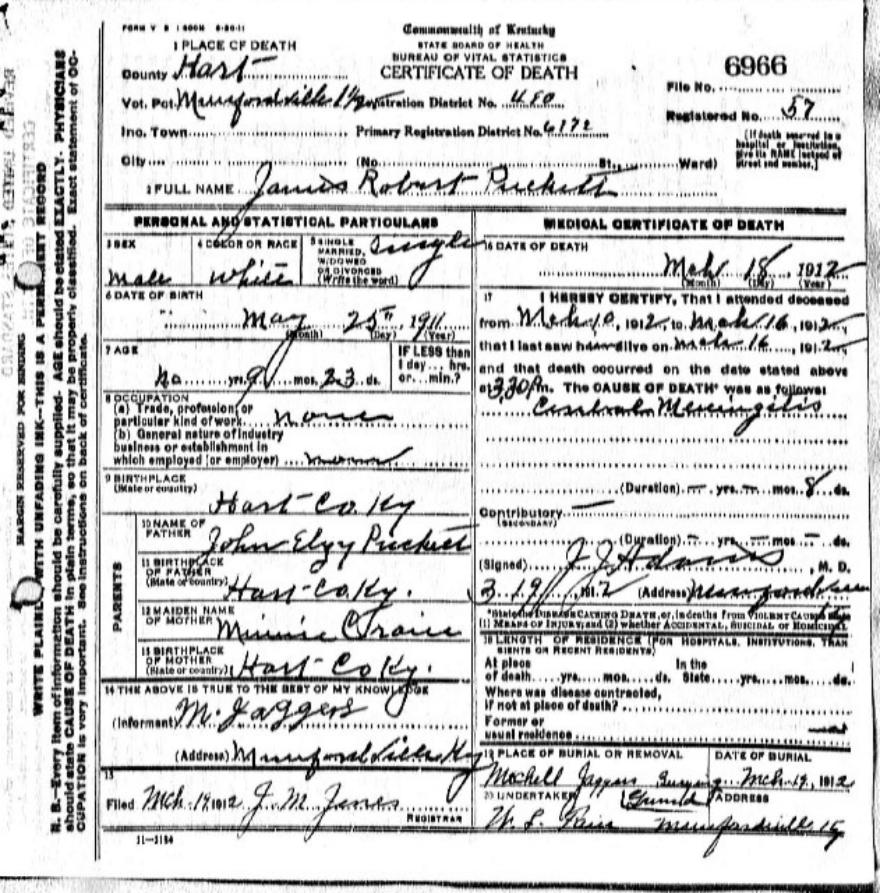 FORM V S 1
Commonwealth of Kentucky
STATE BOARD OF HEALTH
BUREAU OF VITAL STATISTICS
CERTIFICATE OF DEATH
1 PLACE OF DEATH
County Hart
Vot. Pct Munfordville Registration District No. 450
Inc. Town Primary Registration District No. 6172
City (No. St., Ward)
6966
File No.
Registered No. 57
[If death occurred in a
hospital or institution,
give its NAME instead of
street and number.]
2 FULL NAME James Robert Puckett
PERSONAL AND STATISTICAL PARTICULARS
3 SEX
male
4 COLOR OR RACE
white
5 SINGLE
MARRIED,
WIDOWED
OR DIVORCED
(Write the word)
Single
6 DATE OF BIRTH
May 25th 1911
(Month) (Day) (Year)
7 AGE
no yrs. 9 mos. 23 ds.
IF LESS than
1 day... hrs.
or... min.?
8 OCCUPATION
(a) Trade, profession, or
particular kind of work none
(b) General nature of industry
business or establishment in
which employed (or employer)
9 BIRTHPLACE
(State or country)
Hart Co. Ky
PARENTS
10 NAME OF
FATHER
John Elzy Puckett
11 BIRTHPLACE
OF FATHER
(State or country)
Hart Co. Ky.
12 MAIDEN NAME
OF MOTHER Minnie
13 BIRTHPLACE
OF MOTHER
(State or country) Hart Co Ky.
14 THE ABOVE IS TRUE TO THE BEST OF MY KNOWLEDGE
(Informant) M. Jaggers
(Address) Munfordville Ky
15
Filed Mch. 19, 1912 J. M. Jones
REGISTRAR
11-3184
MEDICAL CERTIFICATE OF DEATH
16 DATE OF DEATH
Mch 18, 1912
(Month) (Day) (Year)
17 I HEREBY CERTIFY, That I attended deceased
from Mch 10, 1912, to Mch 16, 1912,
that I last saw alive on Mch 16, 1912,
and that death occurred on the date stated above
at 3.30 Pm. The CAUSE OF DEATH* was as follows:
Meningitis
(Duration) — yrs. — mos. 8 ds.
Contributory —
(SECONDARY)
(Duration) — yrs — mos — ds.
(Signed) J. J. Adams, M. D.
3.19, 1912 (Address)
*State the DISEASE CAUSING DEATH, or, in deaths from VIOLENT CAUSES state
(1) MEANS OF INJURY, and (2) whether ACCIDENTAL, SUICIDAL OR HOMICIDAL
18 LENGTH OF RESIDENCE (FOR HOSPITALS, INSTITUTIONS, TRAN
SIENTS OR RECENT RESIDENTS)
At place In the
of death yrs. mos. ds. State yrs. mos. ds.
Where was disease contracted,
if not at place of death?
Former or
usual residence
19 PLACE OF BURIAL OR REMOVAL
Jaggers Burying Ground
DATE OF BURIAL
Mch. 19, 1912
20 UNDERTAKER
ADDRESS
Munfordville Ky
MARGIN RESERVED FOR BINDING
WRITE PLAINLY WITH UNFADING INK—THIS IS A PERMANENT RECORD
N. B.—Every item of information should be carefully supplied. AGE should be stated EXACTLY. PHYSICIANS
should state CAUSE OF DEATH in plain terms, so that it may be properly classified. Exact statement of OC-
CUPATION is very important. See instructions on back of certificate.